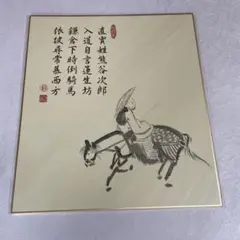 直實姓熊谷次郎
入道自言蓮生坊
鎌倉下時倒騎馬
依按尋常甚西方